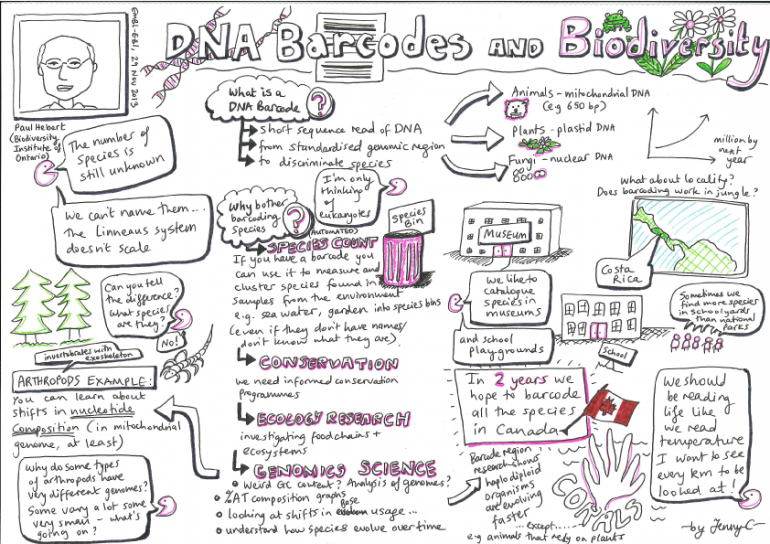 EMBL-EBI, 29 Nov 2013
DNA Barcodes AND Biodiversity
Paul Hebert
(Biodiversity
Institute of
Ontario)
The number of
species is
still unknown
We can't name them...
The Linneaus system
doesn't scale
Can you tell
the difference?
What species
are they?
No!
invertebrates with
exoskeleton
ARTHROPODS EXAMPLE:
You can learn about
shifts in nucleotide
composition (in mitochondrial
genome, at least)
Why do some types
of arthropods have
very different genomes?
Some vary a lot some
very small - what's
going on?
What is a
DNA Barcode
?
short sequence read of DNA
from standardised genomic region
to discriminate species
Animals - mitochondrial DNA
(e.g 650 bp)
Plants - plastid DNA
Fungi - nuclear DNA
million by
next
year
I'm only
thinking
of
eukaryotes
Why bother
barcoding
species
?
(AUTOMATED)
SPECIES COUNT
Species
Bin
If you have a barcode you
can use it to measure and
cluster species found in
samples from the environment
e.g. sea water, garden into species bins
(even if they don't have names/
don't know what they are).
CONSERVATION
we need informed conservation
Programmes
ECOLOGY RESEARCH
investigating foodchains +
ecosystems
GENOMICS SCIENCE
Weird GC content? Analysis of genomes?
%AT composition graphs
looking at shifts in Base usage...
understand how species evolve over time
What about locality?
Does barcoding work in jungle?
Costa
Rica
Museum
we like to
catalogue
species in
museums
and school
playgrounds
School
Sometimes we
find more species
in schoolyards
than national
parks
In 2 years we
hope to barcode
all the species
in Canada
Barcode region
research shows
haplodiploid
organisms
are evolving
faster
...except......
e.g animals that rely on plants
CORALS
We should
be reading
life like
we read
temperature
I want to see
every km to be
looked at!
by Jenny C